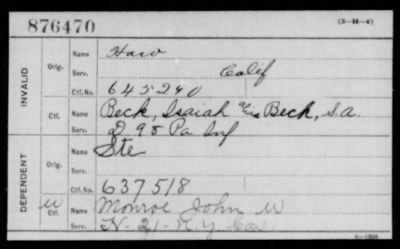 876470
(3—14—4)
INVALID
Orig.
Name
Serv.
Calif
Ctf. No.
645240
Ctf.
Name Beck, Isaiah Beck, S.A.
Serv. D 95 Pa Inf
DEPENDENT
Orig.
Name Ste
Serv.
Ctf. No. 637518
W Ctf.
Name Monroe John W
Serv. N.Y. Cav